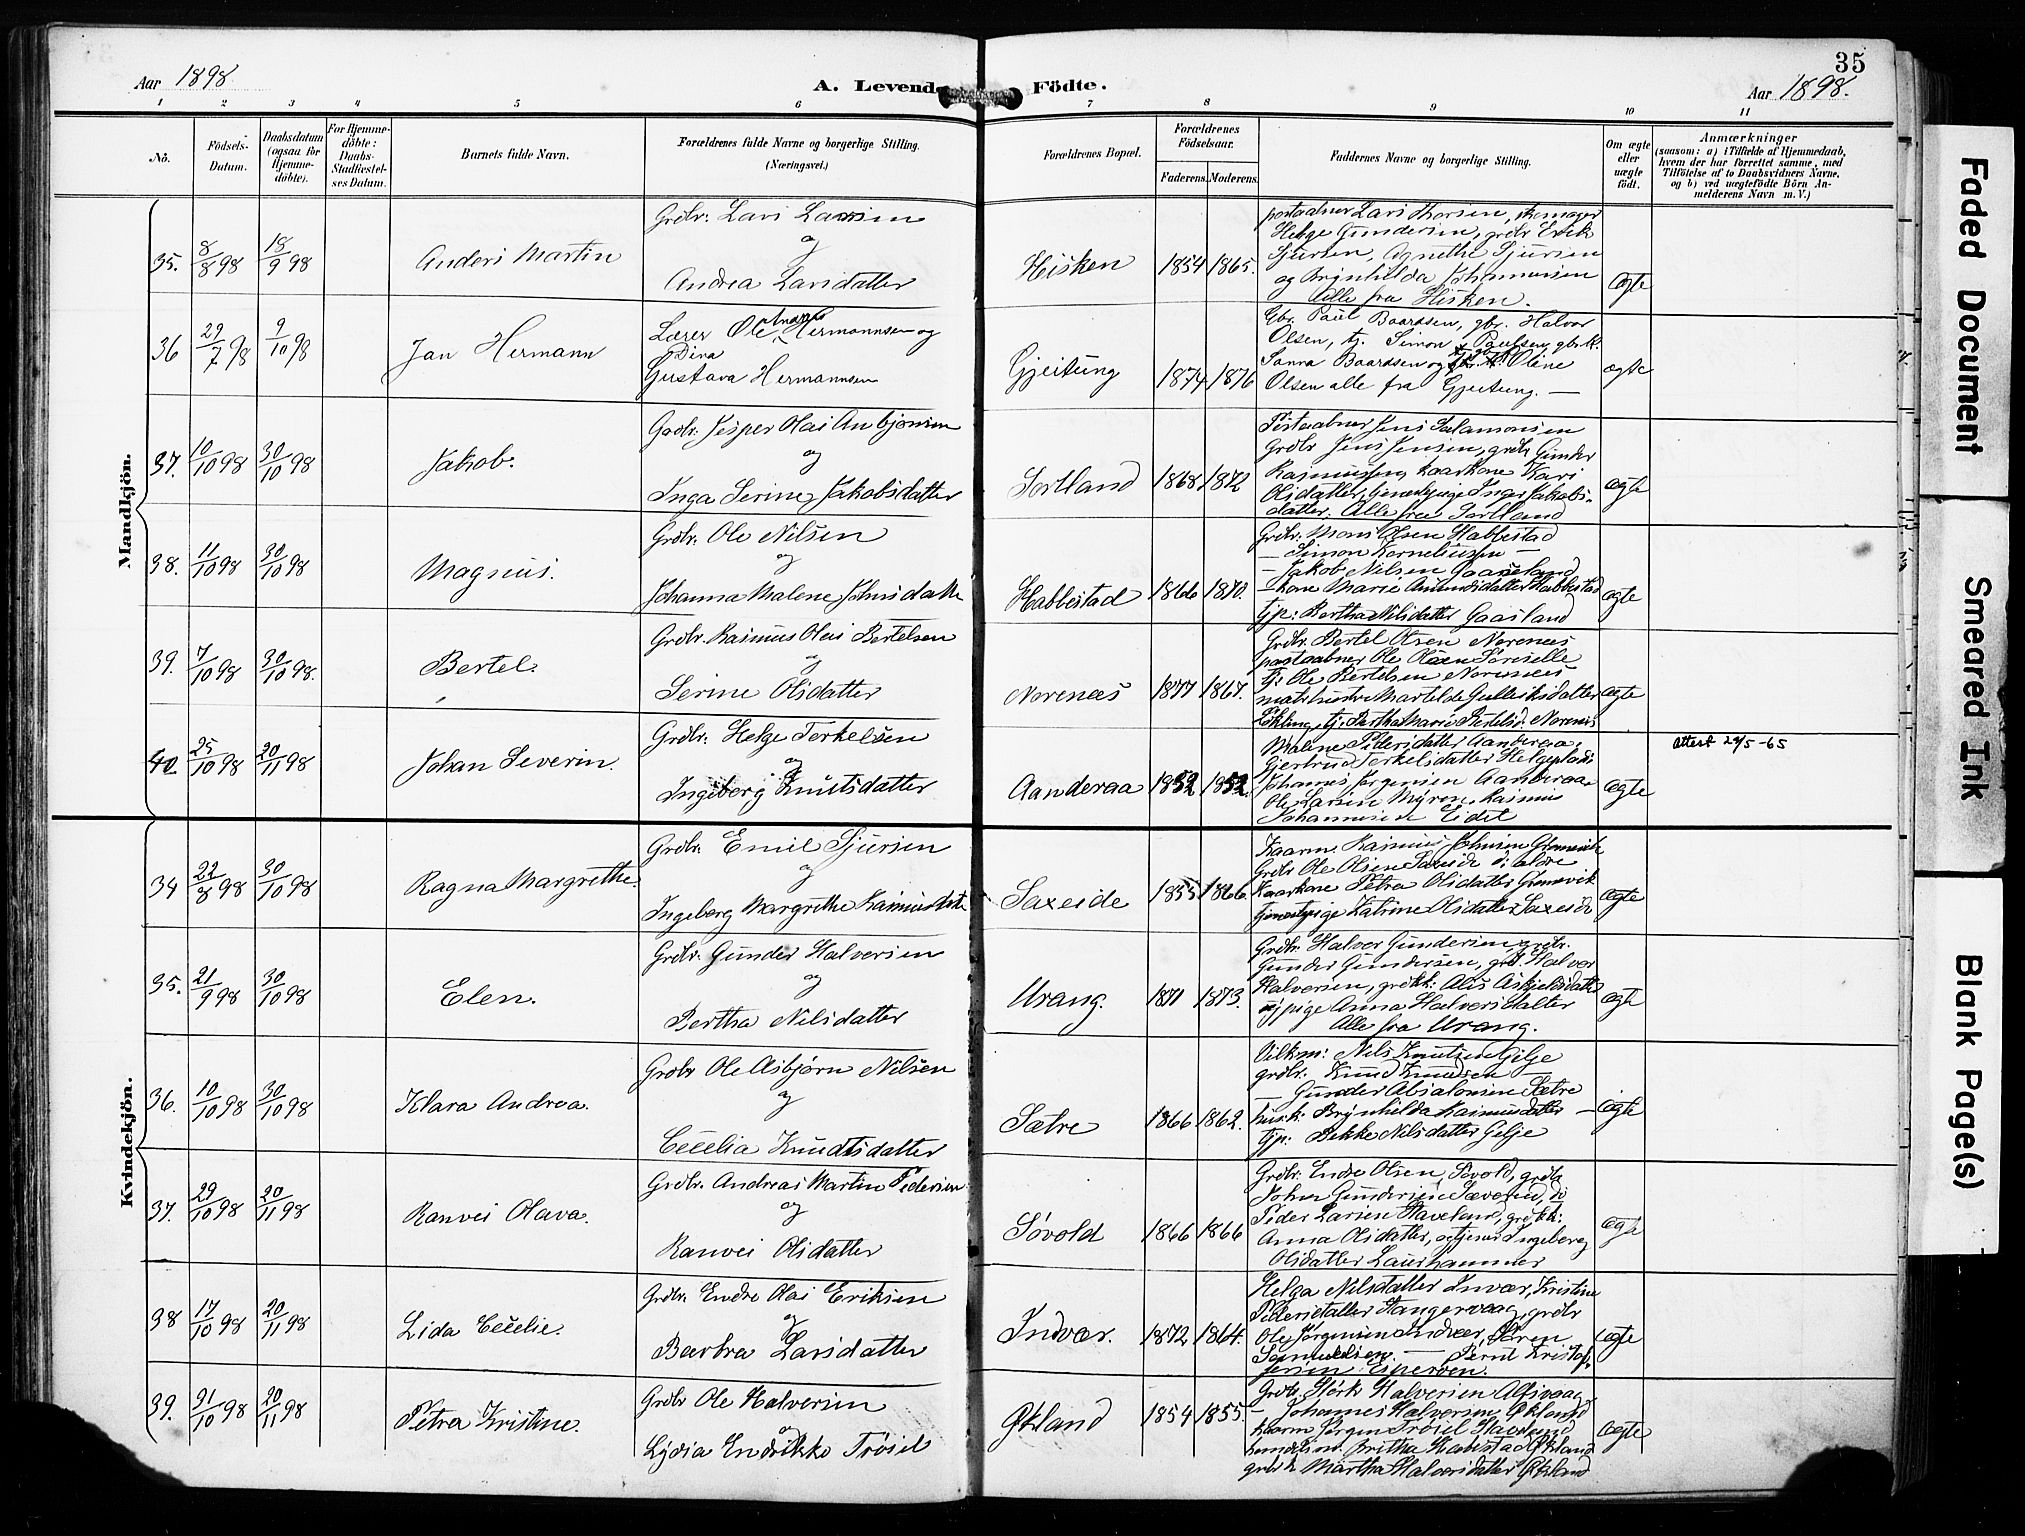 35
Aar 1898
A. Levende Födte.
Aar 1898.
1 2 3 4 5 6 7 8 9 10 11
No.
Födsels-Datum.
Daabsdatum (ogsaa for Hjemme-döbte).
For Hjemme-döbte: Daabs-Stadfæstel-ses Datum.
Barnets fulde Navn.
Forældrenes fulde Navne og borgerlige Stilling. (Næringsvei.)
Forældrenes Bopæl.
Forældrenes Födselsaar.
Faderens. Moderens.
Faddernes Navne og borgerlige Stilling.
Om ægte eller uægte födt.
Anmærkninger
(saasom: a) i Tilfælde af Hjemmedaab, hvem der har forrettet samme, med Tilföielse af to Daabsvidners Navne, og b) ved uægtefödte Börn An-melderens Navn m. V.)
Mandkjön.
35. 8/8 98 18/9 98 Anders Martin
Grdbr: Lars Larsen
og
Andrea Larsdatter
Hisken 1854 1865.
postaabner Lars Thorsen, skomager
Helge Gundersen, grdbr Erik
Sjursen, Agnethe Sjursen
og Brynhilda Johannesen
Alle fra Hisken.
Ægte
36 29/7 98 9/10 98 Jan Hermann
Lærer Ole Andreas Hermannsen og
Dina
Gustava Hermannsen
Gjeitung 1874 1876
Gbr. Paul Baardsen, gbr. Halvor
Olsen, tj. Simon Paulsen, gbrk.
Sanna Baardsen og Oline
Olsen alle fra Gjeitung. —
ægte
37. 10/10 98 30/10 98 Jakob.
Grdbr: Jesper Olai Anbjørnsen
og
Inga Serine Jakobsdatter
Sortland 1868 1872
Postaabner Jens Salamonsen
Grdbr Jens Jensen, grdbr Gunder
Rasmussen, kaarkone Kari
Olsdatter, tjenestepige Inger Jakobs-
datter. Alle fra Sortland
ægte
38. 11/10 98 30/10 98 Magnus.
Grdbr: Ole Nilsen
og
Johanna Malene Johnsdatter
Habbestad 1866 1870.
Grdbr. Mons Olsen Habbestad
— Simon Korneliussen —
— Jakob Nilsen Gaasland
— kone Marie Amundsdatter Habbestad
tjp: Bertha Nilsdatter Gaasland
ægte
39. 7/10 98 30/10 98. Bertel.
Grdbr. Rasmus Olai Bertelsen
og
Serine Olsdatter
Norenæs 1877 1867.
Grdbr. Bertel Olsen Norenæs
postaabner Ole Olsen
Tj: Ole Bertelsen Norenæs
Martilde Gulleiksdatter
Løkling, tj. Bertha Marie Bertelsd. Norenæs
ægte
40 25/10 98 20/11 98 Johan Severin.
Grdbr: Helge Terkelsen
og
Ingeborg Knutsdatter
Aanderaa 1852 1852.
Malene Pedersdatter Aanderaa,
Gjertrud Terkelsdatter
Johannes Jørgensen Aanderaa
Ole Larsen Myren, Rasmus
Johannesen Eidet
Ægte
Attest 29/5-65
Kvindekjön.
34 22/8 98 30/10 98 Ragna Margrethe.
Grdbr: Emil Sjursen
og
Ingeborg Margrethe Rasmusdatter
Saxeide 1855 1866.
Kaarm. Rasmus Johnsen
Grdbr Ole Olsen Saxeide d: ældre
Kaarkone Petra Olsdatter Grønsvik
tjenestepige Katrine Olsdatter Saxeide
Ægte
35. 21/9 98 30/10 98 Elen.
Grdbr. Gunder Halvorsen
og
Bertha Nilsdatter
Urang. 1871 1873.
Grdbr. Halvor Gundersen, grdbr.
Gunder Gundersen, grdb. Halvor
Halvorsen, grdbk: Alis Askjelsdatter
pige Anna Halvorsdatter
Alle fra Urang.
ægte
36. 10/10 98 30/10 98 Klara Andrea.
Grdbr Ole Asbjørn Nilsen
og
Cecelia Knudtsdatter
Sætre 1866 1862.
Nils Knutsen Gilje
grdbr: Knud Knudsen —
— Gunder Absalonsen Sætre
hus.k: Brynhilda Rasmusdatter —
tjp: Bekke Nilsdatter Gilje
ægte
37. 29/10 98 20/11 98 Ranvei Olava.
Grdbr. Andreas Martin Pedersen
og
Ranvei Olsdatter
Søvold 1866 1866
Grdbr. Endre Olsen, Søvold, grdbr
John Gundersen, do
Peder Larsen Staveland, grdbk:
Anna Olsdatter, og Ingeborg
Olsdatter Laurhammer
Ægte
38 17/10 98 20/11 98 Lida Cecelie.
Grdbr. Endre Olai Eriksen
og
Barbra Larsdatter
Indvær. 1872 1864.
Helga Nilsdatter Invær, Kristine
Pedersdatter Stangervaag, grdbr
Ole Jørgensen Indvær, Søren
Samuelsen — Bernt Kristof-
fersen
ægte
39. 31/10 98 20/11 98 Petra Kristine.
Grdbr Ole Halvorsen
og
Lydia Endrikke Trøiel
Økland 1854 1855.
Grdbr. Størk Halvorsen Alfsvaag
— Johannes Halvorsen Økland
kaarm Jørgen Trøiel Stavland
Britha Habbestad Økland
grdbrk Martha Halvorsdatter Økland
Ægte
Faded Document
Smeared Ink
Blank Page(s)